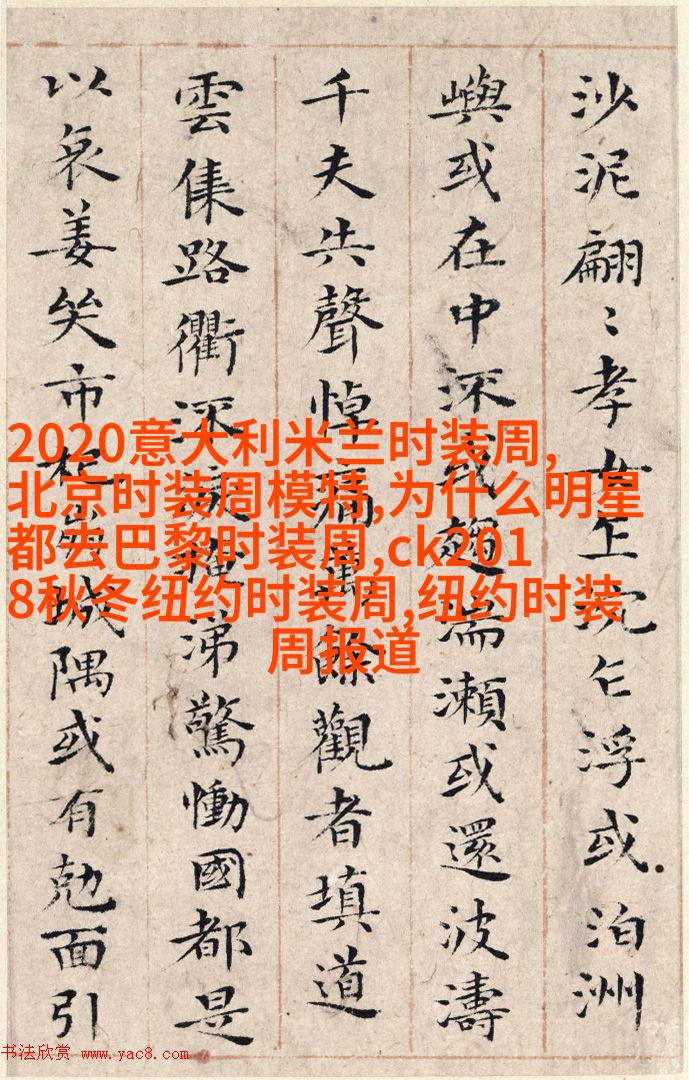 沙泥翩〻孝女乍沉乍浮或泊洲
嶼或在中流或趨湍瀬或還波濤
千夫共聲悼痛萬餘觀者填道
雲集路衢流淚掩涕驚慟國都是
以哀姜哭市杞崩城隅或有尅面引
2020意大利米兰时装周,
北京时装周模特,为什么明星
都去巴黎时装周,ck201
8秋冬纽约时装周,纽约时装
周报道
书法欣赏 www.yac8.com